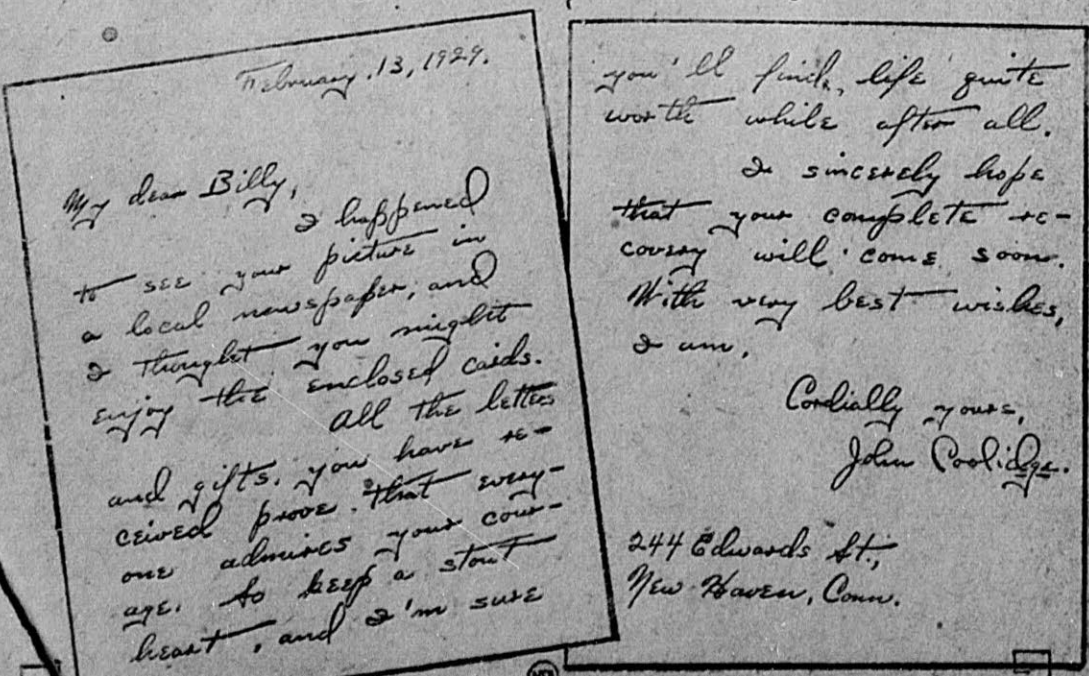 February 13, 1929.
My dear Billy,
I happened
to see your picture in
a local newspaper, and
I thought you might
enjoy the enclosed cards.
All the letters
and gifts you have re-
ceived prove that every-
one admires your cour-
age. So keep a stout
heart, and I'm sure
you'll find life quite
worth while after all.
I sincerely hope
that your complete re-
covery will come soon.
With very best wishes,
I am,
Cordially yours,
John Coolidge.
244 Edwards St.,
New Haven, Conn.